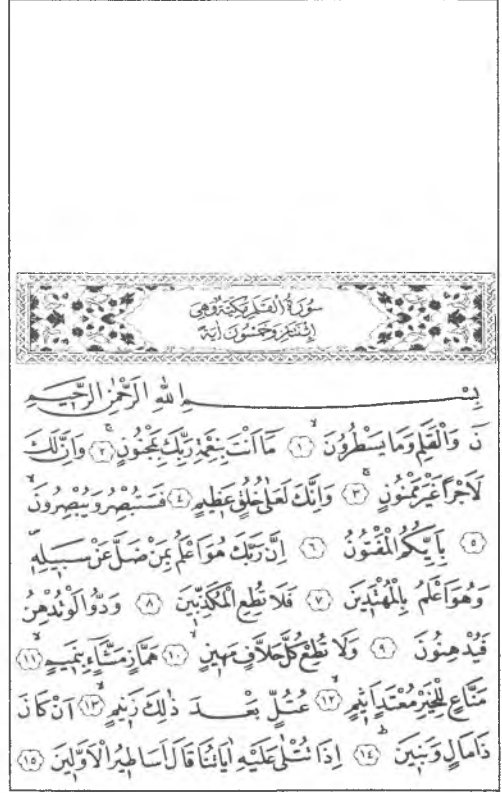 سُورَةُ الْقَلَمِ مَكِّيَّةٌ وَهِيَ
اِثْنَتَانِ وَخَمْسُونَ اٰيَةً
بِسْمِ اللّٰهِ الرَّحْمٰنِ الرَّحٖيمِ
نٓ وَالْقَلَمِ وَمَا يَسْطُرُونَۙ ﴿١﴾ مَٓا اَنْتَ بِنِعْمَةِ رَبِّكَ بِمَجْنُونٍۚ ﴿٢﴾ وَاِنَّ لَكَ
لَاَجْرًا غَيْرَ مَمْنُونٍۚ ﴿٣﴾ وَاِنَّكَ لَعَلٰى خُلُقٍ عَظٖيمٍ ﴿٤﴾ فَسَتُبْصِرُ وَيُبْصِرُونَۙ
﴿٥﴾ بِاَيِّكُمُ الْمَفْتُونُ ﴿٦﴾ اِنَّ رَبَّكَ هُوَ اَعْلَمُ بِمَنْ ضَلَّ عَنْ سَبٖيلِهٖ
وَهُوَ اَعْلَمُ بِالْمُهْتَدٖينَ ﴿٧﴾ فَلَا تُطِعِ الْمُكَذِّبٖينَ ﴿٨﴾ وَدُّوا لَوْ تُدْهِنُ
فَيُدْهِنُونَ ﴿٩﴾ وَلَا تُطِعْ كُلَّ حَلَّافٍ مَهٖينٍۙ ﴿١٠﴾ هَمَّازٍ مَشَّٓاءٍ بِنَمٖيمٍۙ ﴿١١﴾
مَنَّاعٍ لِلْخَيْرِ مُعْتَدٍ اَثٖيمٍۙ ﴿١٢﴾ عُتُلٍّ بَعْدَ ذٰلِكَ زَنٖيمٍۙ ﴿١٣﴾ اَنْ كَانَ
ذَا مَالٍ وَبَنٖينَۜ ﴿١٤﴾ اِذَا تُتْلٰى عَلَيْهِ اٰيَاتُنَا قَالَ اَسَاطٖيرُ الْاَوَّلٖينَ ﴿١٥﴾